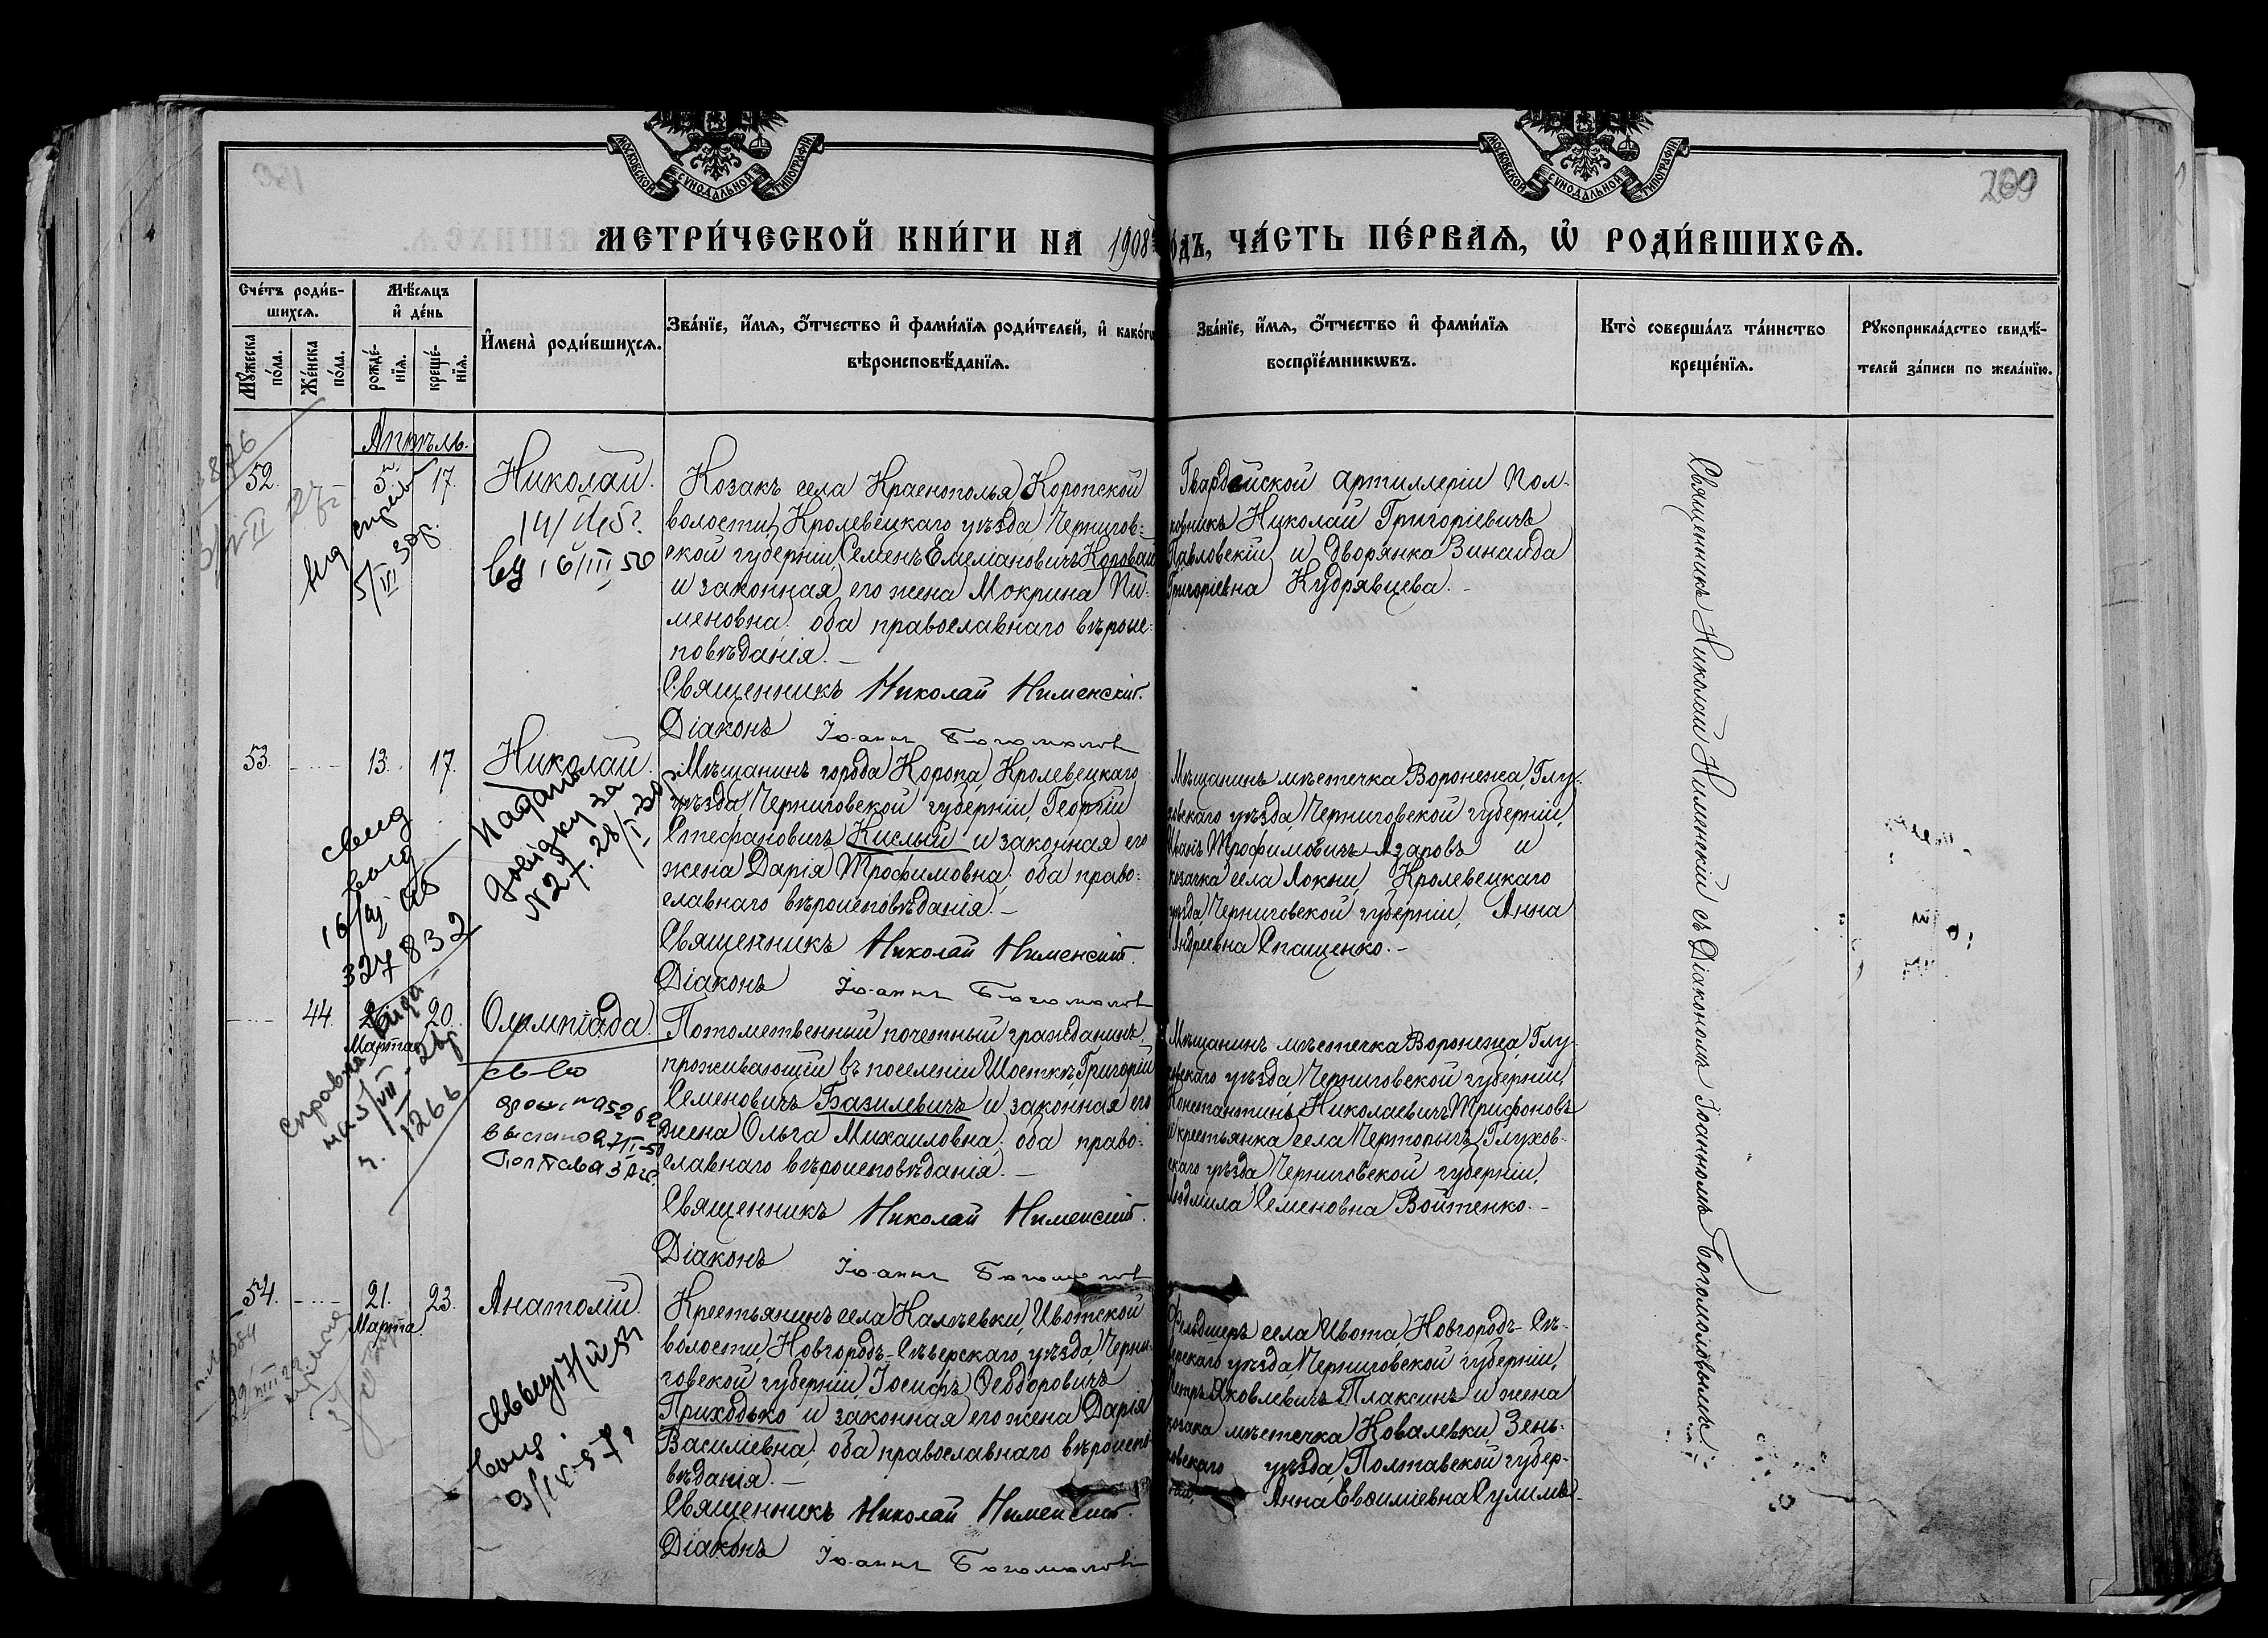 МОСКОВСКОЙ СУНОДАЛЬНОЙ ТИПОГРАФІИ
МОСКОВСКОЙ СУНОДАЛЬНОЙ ТИПОГРАФІИ
209
МЕТРИ́ЧЕСКОЙ КНИ́ГИ НА 1908 ГОДЪ, ЧА́СТЬ ПЕ́РВАѦ, Ѡ҆ РОДИ́ВШИХСѦ.
Сче́тъ роди́в-
шихсѧ.
Мꙋ́жеска по́ла.
Же́нска по́ла.
Мѣ́сѧцъ
и҆ де́нь
рожде́-
нїѧ.
креще́-
нїѧ.
И҆мена̀ роди́вшихсѧ.
Зва́нїе, и҆́мѧ, ѻ҆́тчество и҆ фами́лїѧ роди́телей, и҆ како́гѡ
вѣроисповѣ́данїѧ.
Зва́нїе, и҆́мѧ, ѻ҆́тчество и҆ фами́лїѧ
воспрїе́мникѡвъ.
Кто̀ соверша́лъ та́инство
креще́нїѧ.
Рꙋкоприкла́дство свидѣ́-
телей за́писи по жела́нїю.
Апрѣль.
52.
5.
17.
Николай.
Козакъ села Краснополья, Коропской
волости, Кролевецкаго уѣзда, Чернигов-
ской губерніи, Семенъ Коровай
и законная его жена Мокрина Пи-
меновна; оба православнаго вѣроис-
повѣданія. –
Священникъ Николай Нименскій.
Діаконъ Іоаннъ Богомоловъ
Гвардейской артиллеріи Пол-
ковникъ Николай Григоріевичъ
Павловскій и дворянка Зинаида
Григоріевна Кудрявцева. –
16/III 50
5/VI 30 г.
53.
13.
17.
Николай.
Мѣщанинъ города Коропа, Кролевецкаго
уѣзда, Черниговской губерніи, Георгій
Стефановичъ Кислый и законная его
жена Дарія Трофимовна; оба право-
славнаго вѣроисповѣданія. –
Священникъ Николай Нименскій.
Діаконъ Іоаннъ Богомоловъ
Мѣщанинъ мѣстечка Воронежа, Глу-
ховскаго уѣзда, Черниговской губерніи,
Иванъ Трофимовичъ Азаровъ и
козачка села Локни, Кролевецкаго
уѣзда, Черниговской губерніи, Анна
Андреевна Спащенко. –
довідку за
N 27. 28/I
327832
44.
Марта
20.
Олимпіада.
Потомственный почетный гражданинъ,
проживающій въ поселеніи Шосткѣ, Григорій
Семеновичъ Базилевичъ и законная его
жена Ольга Михаиловна; оба право-
славнаго вѣроисповѣданія. –
Священникъ Николай Нименскій.
Діаконъ Іоаннъ Богомоловъ
Мѣщанинъ мѣстечка Воронежа, Глу-
ховскаго уѣзда, Черниговской губерніи,
Константинъ Николаевичъ Трифоновъ
и крестьянка села Чарторыгъ, Глухов-
скаго уѣзда, Черниговской губерніи,
Людмила Семеновна Войтенко. –
1266
54.
21.
Марта.
23.
Анатолій.
Крестьянинъ села Калѣевки, Ивотской
волости, Новгородъ-Сѣверскаго уѣзда, Черни-
говской губерніи, Іосифъ Ѳеодоровичъ
Приходько и законная его жена Дарія
Василіевна; оба православнаго вѣроиспо-
вѣданія. –
Священникъ Николай Нименскій.
Діаконъ Іоаннъ Богомоловъ
Фельдшеръ села Ивота, Новгородъ-Сѣ-
верскаго уѣзда, Черниговской губерніи,
Петръ Яковлевичъ Плаксинъ и жена
козака мѣстечка Ковалевки, Зень-
ковскаго уѣзда, Полтавской губер-
ніи, Анна Евѳиміевна Сулима.
Священникъ Николай Нименскій съ Діакономъ Іоанномъ Богомоловымъ.